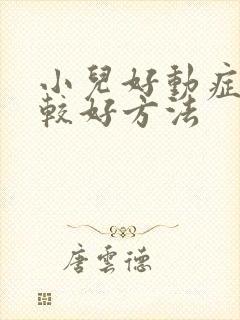 小兒好動症
較好方法
唐雲德